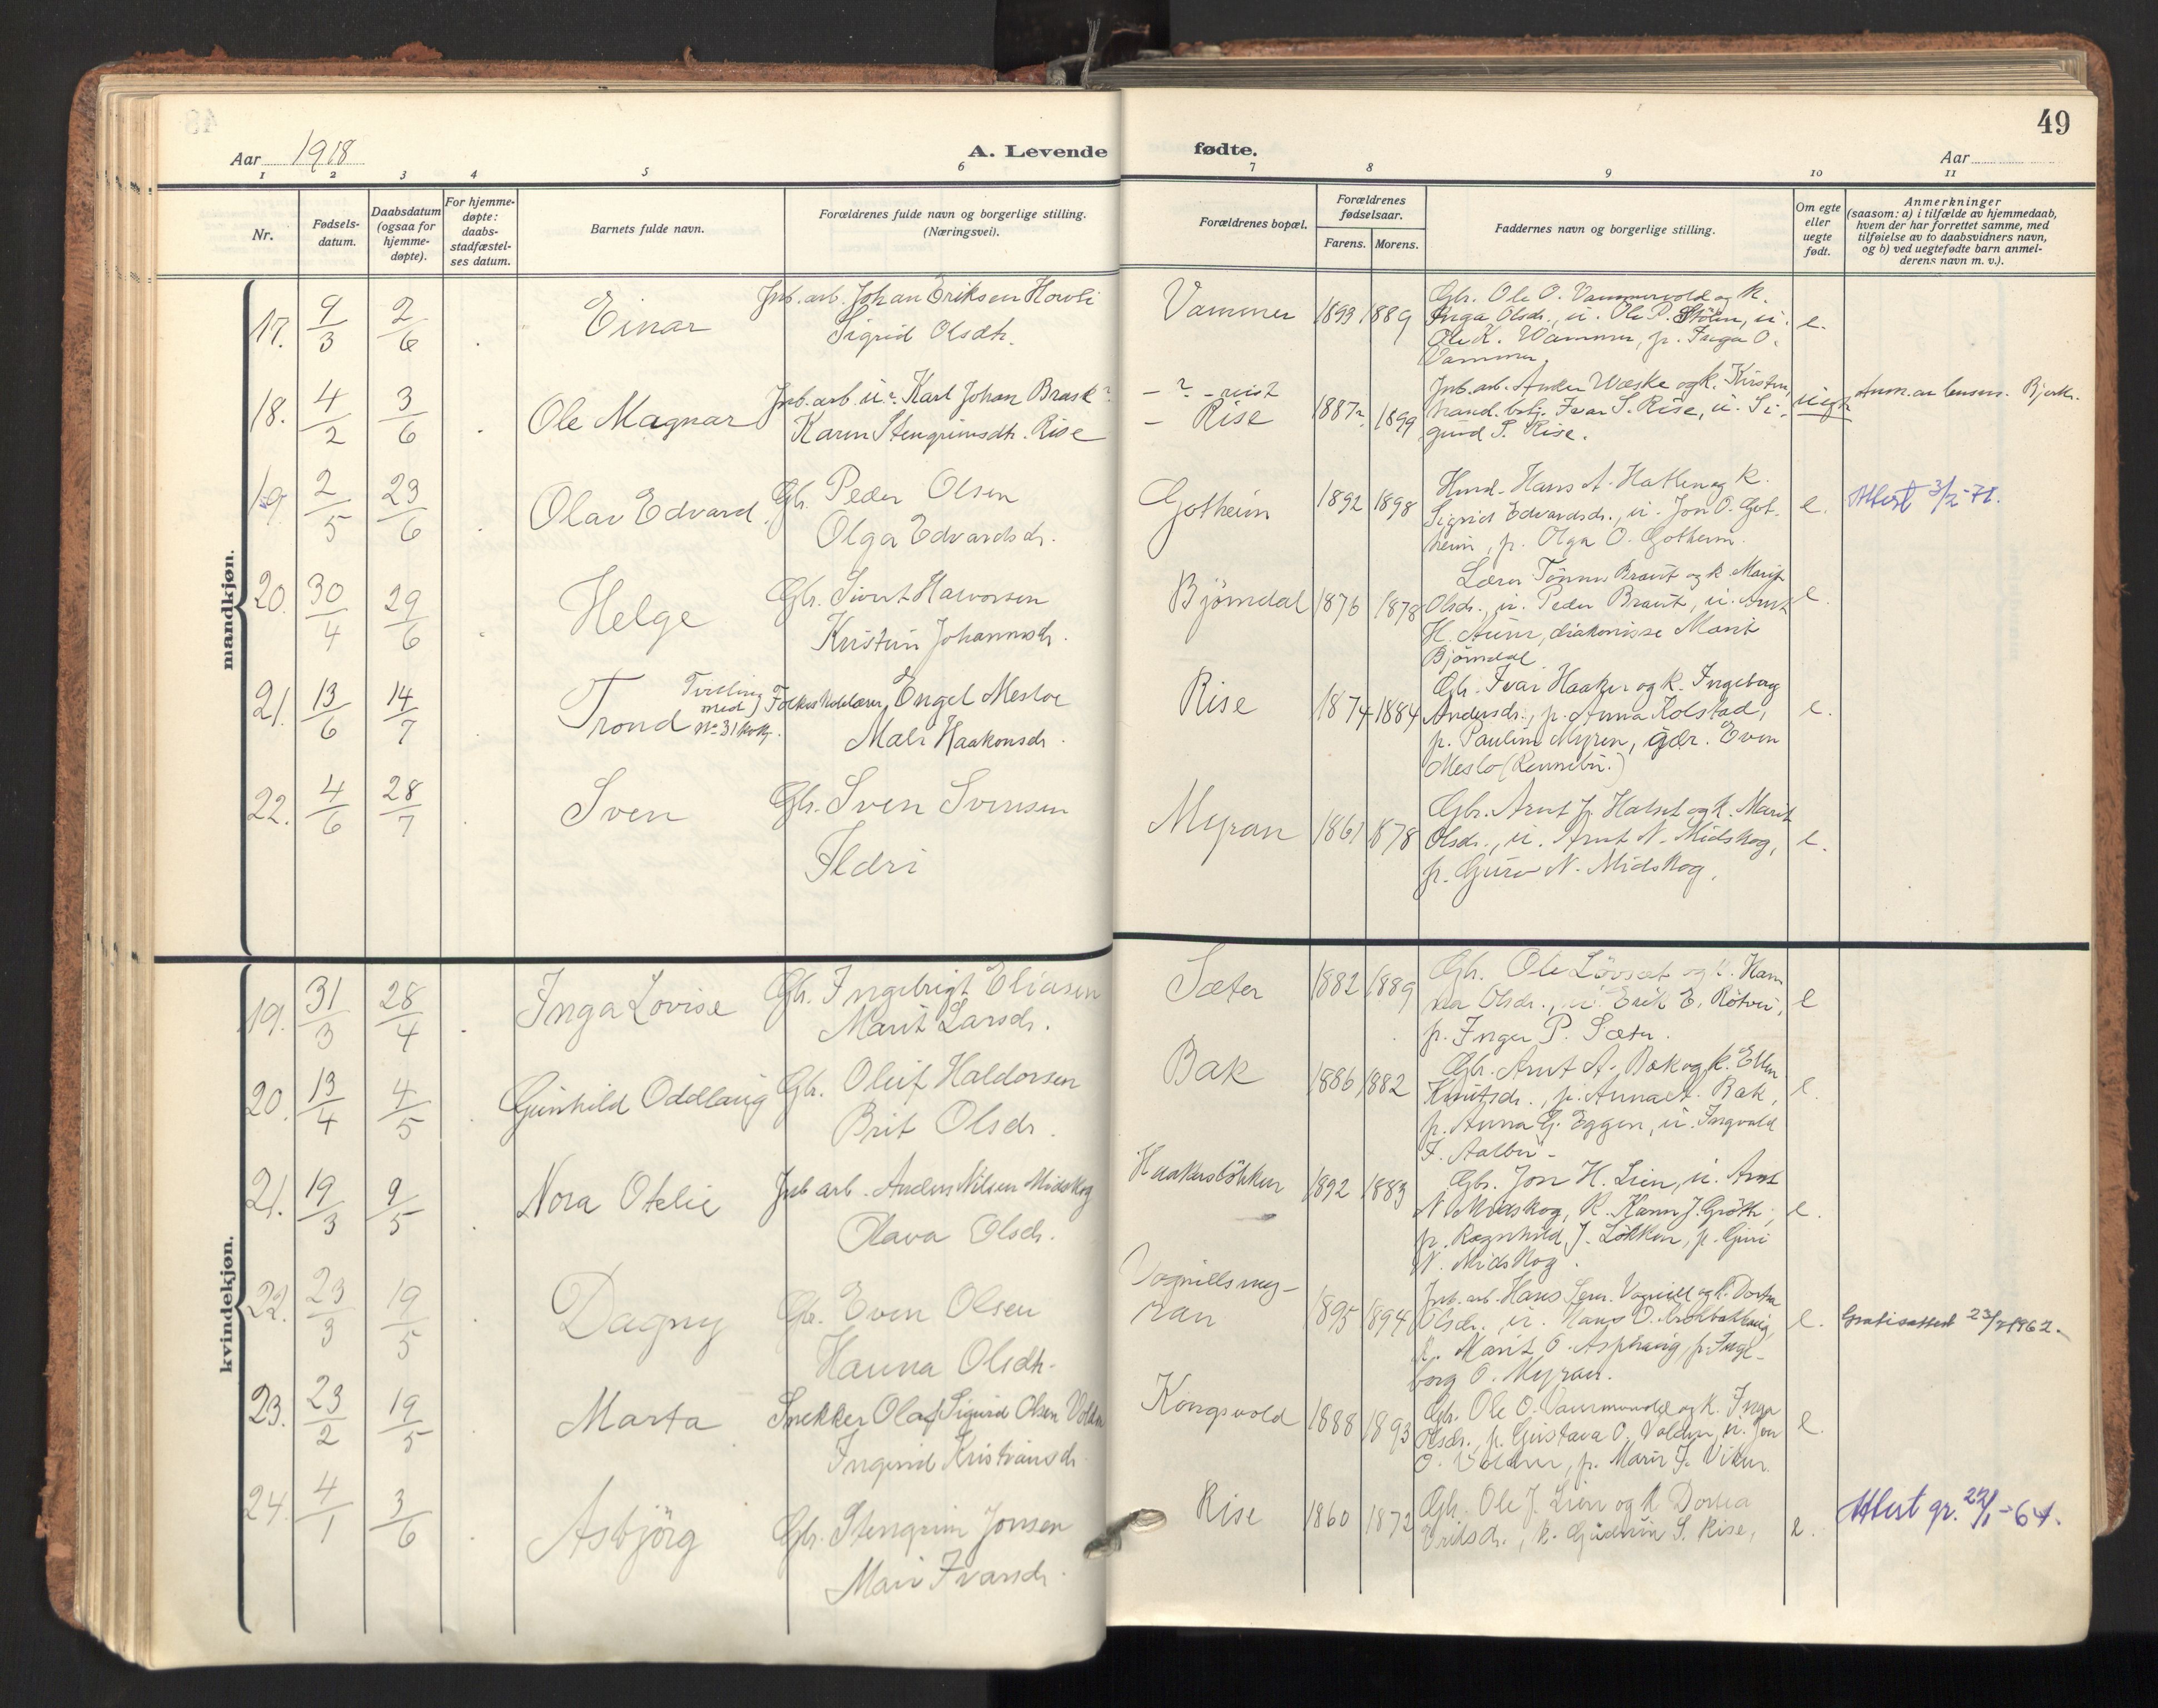 49
Aar 1918
A. Levende
fødte.
Aar
1 2 3 4 5 6 7 8 9 10 11
Nr.
Fødsels-
datum.
Daabsdatum
(ogsaa for
hjemme-
døpte).
For hjemme-
døpte:
daabs-
stadfæstel-
ses datum.
Barnets fulde navn.
Forældrenes fulde navn og borgerlige stilling.
(Næringsvei).
Forældrenes bopæl.
Forældrenes
fødselsaar.
Farens. Morens.
Faddernes navn og borgerlige stilling.
Om egte
eller
uegte
født.
Anmerkninger
(saasom: a) i tilfælde av hjemmedaab,
hvem der har forrettet samme, med
tilføielse av to daabsvidners navn,
og b) ved uegtefødte barn anmel-
derens navn m. v.).
mandkjøn.
17. 9/3 2/6 Einar
Jnb. arb. Johan Eriksen Hovli
Sigrid Olsdtr.
Vammer 1893 1889
Gbr. Ole O. Vammervold og k.
Inga Olsdr., u. Ole P. Stölen, u.
Ole K. Vammer, p. Inga O.
Vammer.
e.
18. 4/2 3/6 Ole Magnar
Jnb. arb. u.? Karl Johan Brask?
Karen Stengrimsdtr. Rise
- ? -
- Rise
1887? 1899
Jnb. arb. Anders Wæske og k. Kirsten,
hand. betj. Ivar S. Rise, u. Si-
gurd S. Rise.
uegte
Anm. av
19. 2/5 23/6 Olav Edvard
Gbr. Peder Olsen
Olga Edvardsdr.
Gotheim 1892 1898
Hans A. Hatlen og k.
Sigrid Edvardsdr., u. Jon O. Got-
heim, p. Olga O. Gotheim.
e.
Attest 3/2-71.
20. 30/4 29/6 Helge
Gbr. Sivert Halvorsen
Kristin Johannsdr.
Bjørndal 1876 1878
Lærer Tönnes Braut og k. Marit
Olsdr., u. Peder Braut, u. Arnt
H. Aune, diakonisse Marit
Bjørndal.
e.
21. 13/6 14/7 Trond
Tvilling
med
No 31 kvkj.
Folkeskolelærer Engel Mesloe
Mali Haakonsdr.
Rise 1874 1884
Gbr. Ivar Haaker og k. Ingeborg
Andersdr., p. Anna Kolstad,
p. Pauline Myren, gdr. Even
Meslo (Rennebu.)
e.
22. 4/6 28/7 Sven
Gbr. Sven Svensen
Ildri
Myran 1861 1878
Gbr. Arnt J. Halset og k. Marit
Olsdr., u. Arnt N. Midskog,
p. Guro N. Midskog.
e.
kvindekjøn.
19. 31/3 28/4 Inga Lovise
Gbr. Ingebrigt Eliasen
Marit Larsdr.
Sæter 1882 1889
Gbr. Ole Lövset og k. Han
na Olsdr., u. Erik E. Rötvei,
p. Inger P. Sæter.
e
20. 13/4 4/5 Gunhild Oddlaug
Gbr. Oluf Haldorsen
Brit Olsdr.
Bak 1886 1882
Gbr. Arnt A. Bak og k. Ellen
Knutsdr., p. Anna A. Bak,
p. Anna G. Eggen, u. Ingvald
I. Aalbu -
e.
21. 19/3 9/5 Nora Otelie
Jnb arb. Anders Nilsen Midskog
Olava Olsdr.
Haakerslökken 1892 1883
Gbr. Jon H. Lien, u. Arnt
N. Midskog, k. Karen J. Gröthe,
p. Ragnhild J. Løkken, p. Guri
N. Midskog.
e.
22. 23/3 19/5 Dagny
Gbr. Even Olsen
Hanna Olsdtr.
Vognillsmy-
ran
1895 1894
Jnb. arb. Hans Vognill og k. Dortea
Olsdr. u. Hans O.
k. Marit O. Asphaug, p. Inge-
borg O. Myran.
e.
Gratisattest 23/2 1962.
23. 23/2 19/5 Marta
Snekker Olaf Sigurd Olsen Volden
Ingerid Kristiansdr.
Kongsvold 1888 1893
Gbr. Ole O. Vammervold og k. Inga
Olsdr., p. Gustava O. Volden, u. Jon
O. Volden, p. Marie J. Viken.
e.
24. 4/1 3/6 Asbjörg
Gbr. Stengrim Jonsen
Mari Ivarsdr.
Rise 1860 1872
Gbr. Ole J. Lien og k. Dortea
Eriksdr., k. Gudrun S. Rise,
e.
Attest gr. 22/1-64.